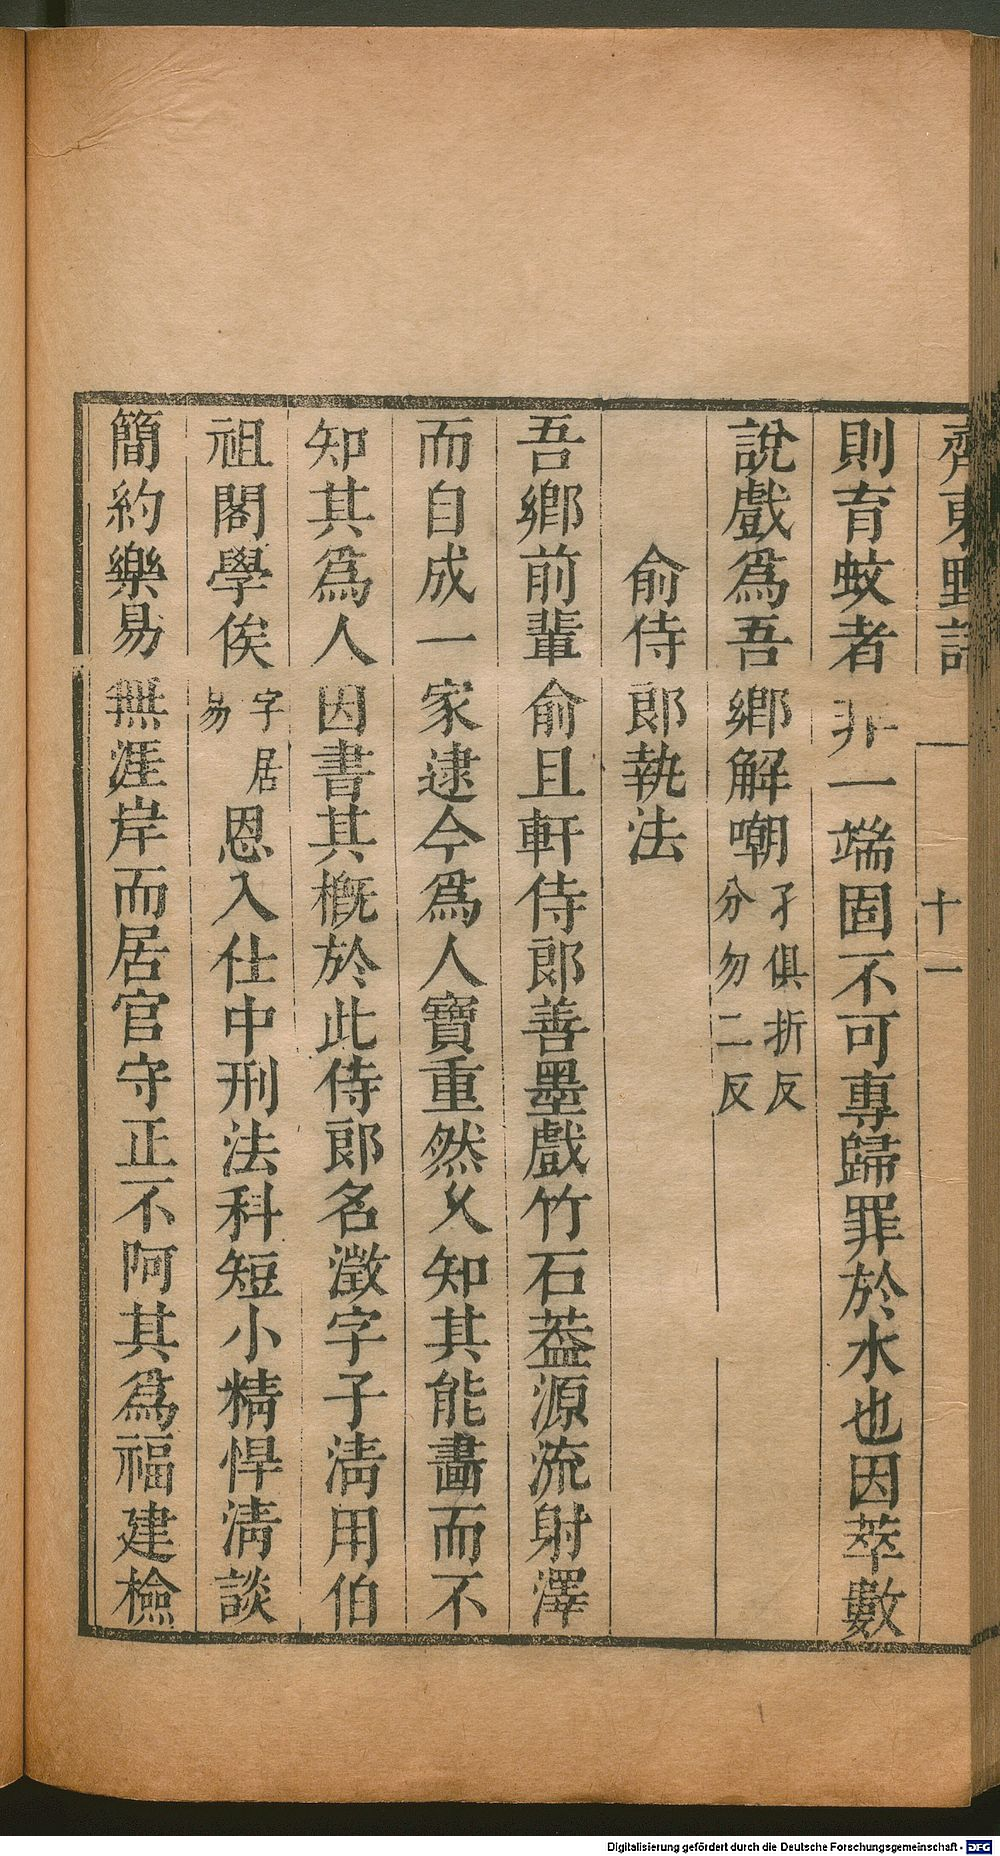 齊東野語
十一
則育蚊者非一端固不可專歸罪於水也因萃數
說戲爲吾鄉解嘲孑俱折反分勿二反
俞侍郎執法
吾鄉前輩俞且軒侍郎善墨戲竹石葢源流射澤
而自成一家逮今爲人寶重然乆知其能畵而不
知其爲人因書其槪於此侍郎名澂字子淸用伯
祖閣學俟字居易恩入仕中刑法科短小精悍淸談
簡約樂易無涯岸而居官守正不阿其爲福建檢
Digitalisierung gefördert durch die Deutsche Forschungsgemeinschaft - DFG